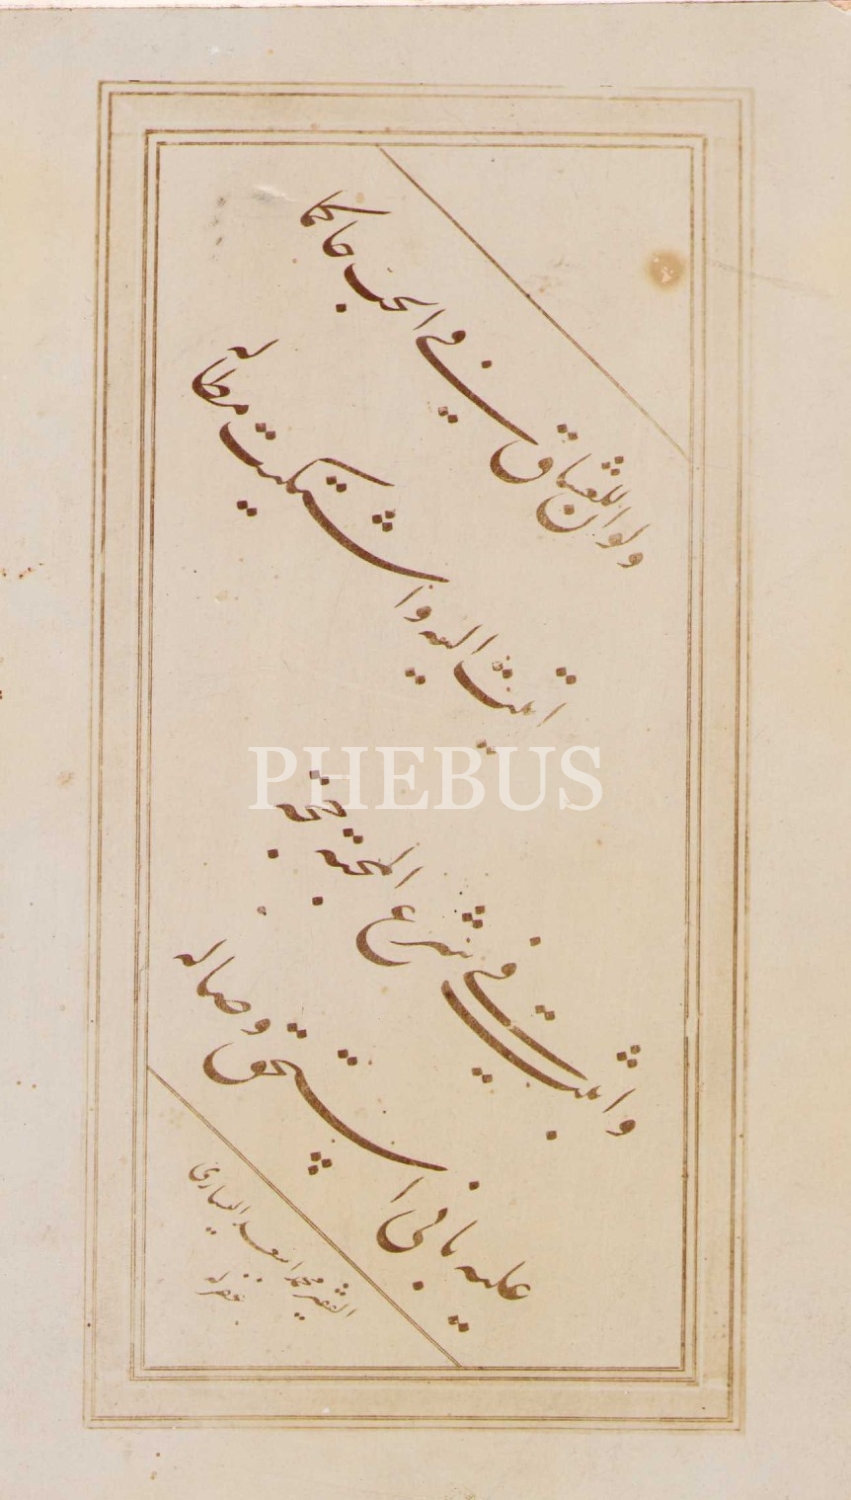 ولو ان للعشاق في الحب حاكما
اتيت اليه واشتكيت مطاله
واثبت في شرع المحبة حجة
عليه باني استحق وصاله
الفقير محمد اسعد اليساري
غفر له
PHEBUS